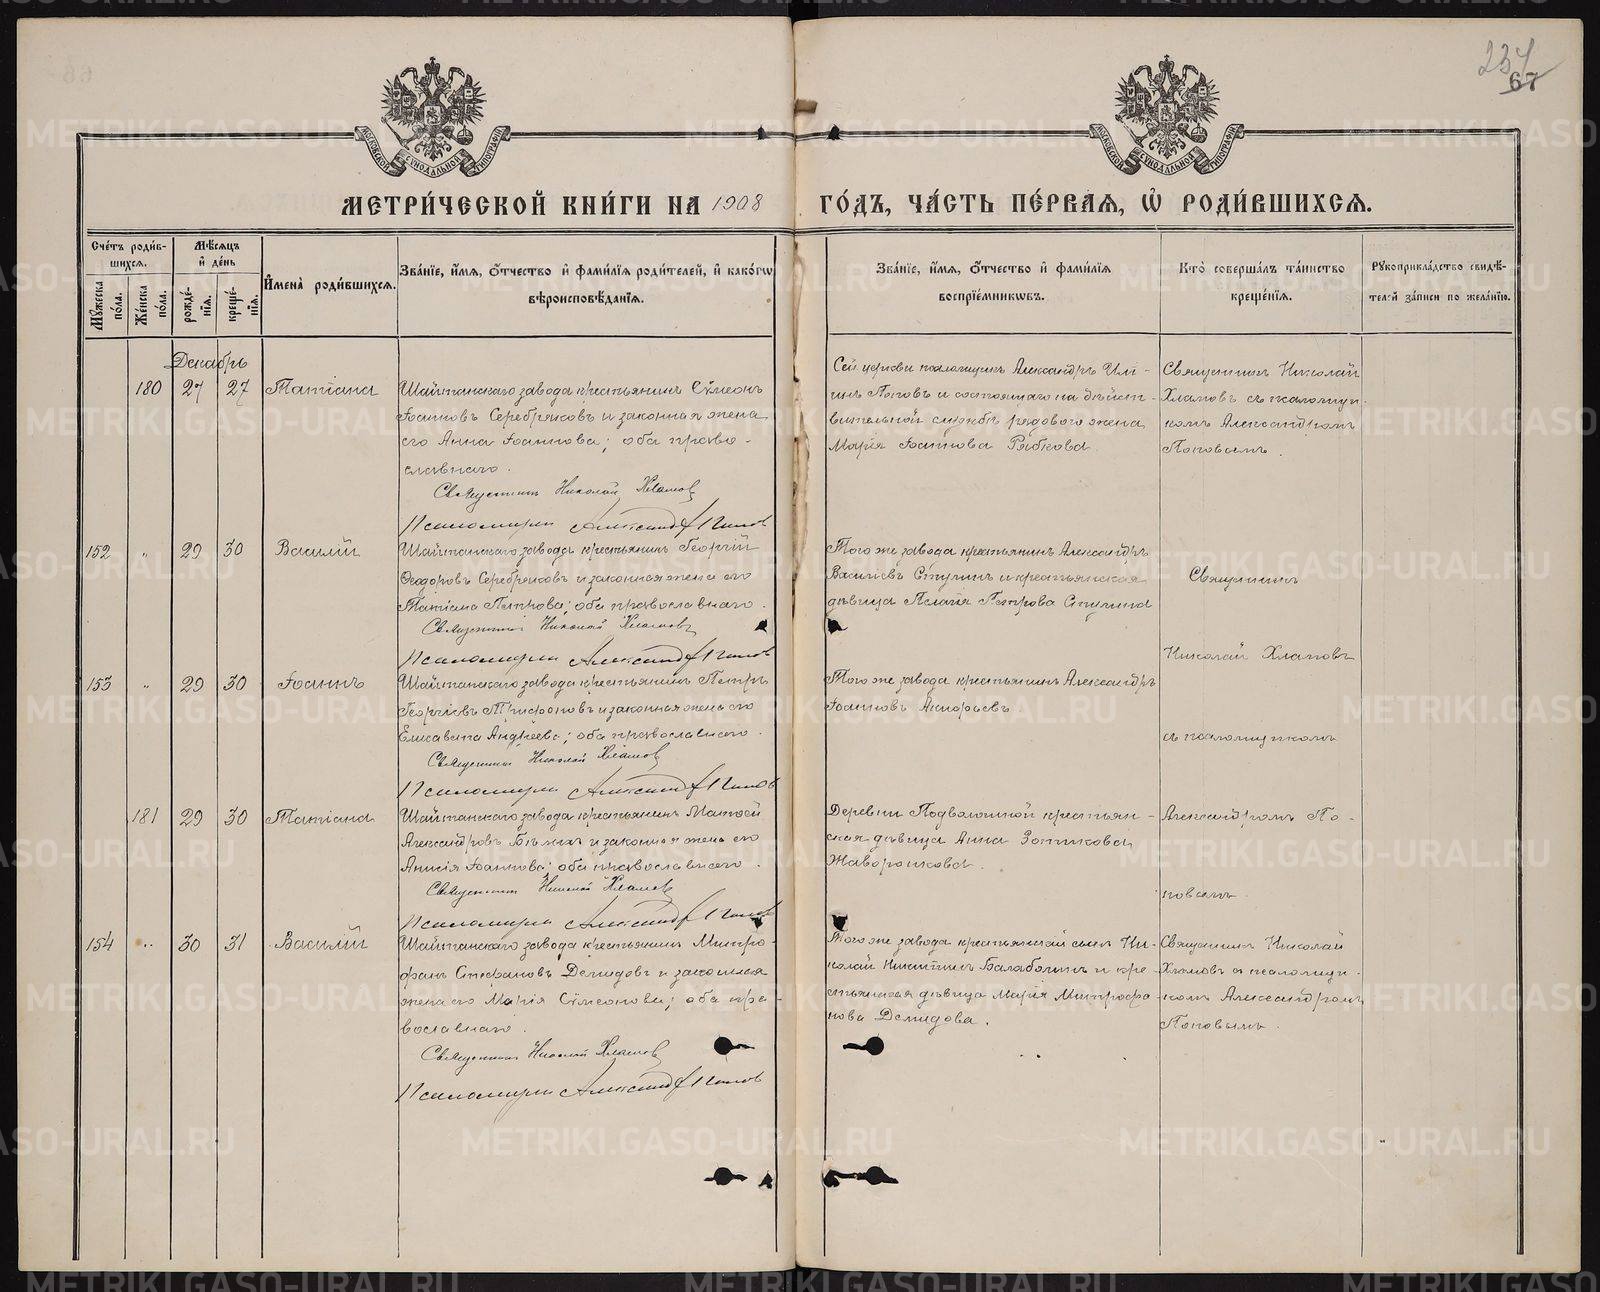 234
67
МЕТРИ́ЧЕСКОЙ КНИ́ГИ НА 1908 ГО́ДЪ, ЧА́СТЬ ПЕ́РВАѦ, Ѡ҆ РОДИ́ВШИХСѦ.
МОСКОВСКОЙ СѴНОДАЛЬНОЙ ТИПОГРАФІИ
МОСКОВСКОЙ СѴНОДАЛЬНОЙ ТИПОГРАФІИ
Сче́тъ роди́в-
шихсѧ.
Мꙋ́жеска по́ла.
Же́нска по́ла.
Мѣ́сѧцъ
и҆ де́нь
рожде́-
нїѧ.
креще́-
нїѧ.
И҆мена̀ роди́вшихсѧ.
Зва́нїе, и҆́мѧ, ѻ҆́тчество и҆ фами́лїѧ роди́телей, и҆ како́гѡ
вѣроисповѣ́данїѧ.
Зва́нїе, и҆́мѧ, ѻ҆́тчество и҆ фами́лїѧ
воспрїе́мникѡвъ.
Кто̀ соверша́лъ та́инство
креще́нїѧ.
Рꙋкоприкла́дство свидѣ́-
телей за́писи по жела́нїю.
Декабрь
180 27 27 Татіана
Шайтанскаго завода крестьянинъ Сѵмеонъ
Іоанновъ Серебряковъ и законная жена
его Анна Іоаннова; оба право-
славнаго.
Священникъ Николай Хламовъ
Псаломщикъ Александръ Поповъ
Сей церкви псаломщикъ Александръ Или-
инъ Поповъ и состоящаго на дѣйст-
вительной службѣ рядового жена
Марія Іоаннова Рябкова.
Священникъ Николай
Хламовъ съ псаломщи-
комъ Александромъ
Поповымъ.
152 " 29 30 Василій
Шайтанскаго завода крестьянинъ Георгій
Ѳеодоровъ Серебряковъ и законная жена его
Татіана Петрова; оба православнаго.
Священникъ Николай Хламовъ
Псаломщикъ Александръ Поповъ
Того же завода крестьянинъ Александръ
Васильевъ Ступинъ и крестьянская
дѣвица Пелагія Петрова Ступина
Священникъ
Николай Хламовъ
153 " 29 30 Іоаннъ
Шайтанскаго завода крестьянинъ Петръ
Георгіевъ Трифоновъ и законная жена его
Елисавета Андреева; оба православнаго.
Священникъ Николай Хламовъ
Псаломщикъ Александръ Поповъ
Того же завода крестьянинъ Александръ
Іоанновъ
съ псаломщикомъ
181 29 30 Татіана
Шайтанскаго завода крестьянинъ Матѳей
Александровъ и законная жена его
Анисія Іоаннова; оба православнаго.
Священникъ Николай Хламовъ
Псаломщикъ Александръ Поповъ
Деревни Подволошной крестьян-
ская дѣвица Анна Зотикова
Жаворонкова.
Александромъ По-
повымъ.
154 " 30 31 Василій
Шайтанскаго завода крестьянинъ Митро-
фанъ Стефановъ Демидовъ и законная
жена его Марія Сѵмеонова; оба пра-
вославнаго.
Священникъ Николай Хламовъ
Псаломщикъ Александръ Поповъ
Того же завода крестьянскій сынъ Ни-
колай Никитинъ Балабонинъ и кре-
стьянская дѣвица Марія Митрофа-
нова Демидова.
Священникъ Николай
Хламовъ съ псаломщи-
комъ Александромъ
Поповымъ.
METRIKI.GASO-URAL.RU